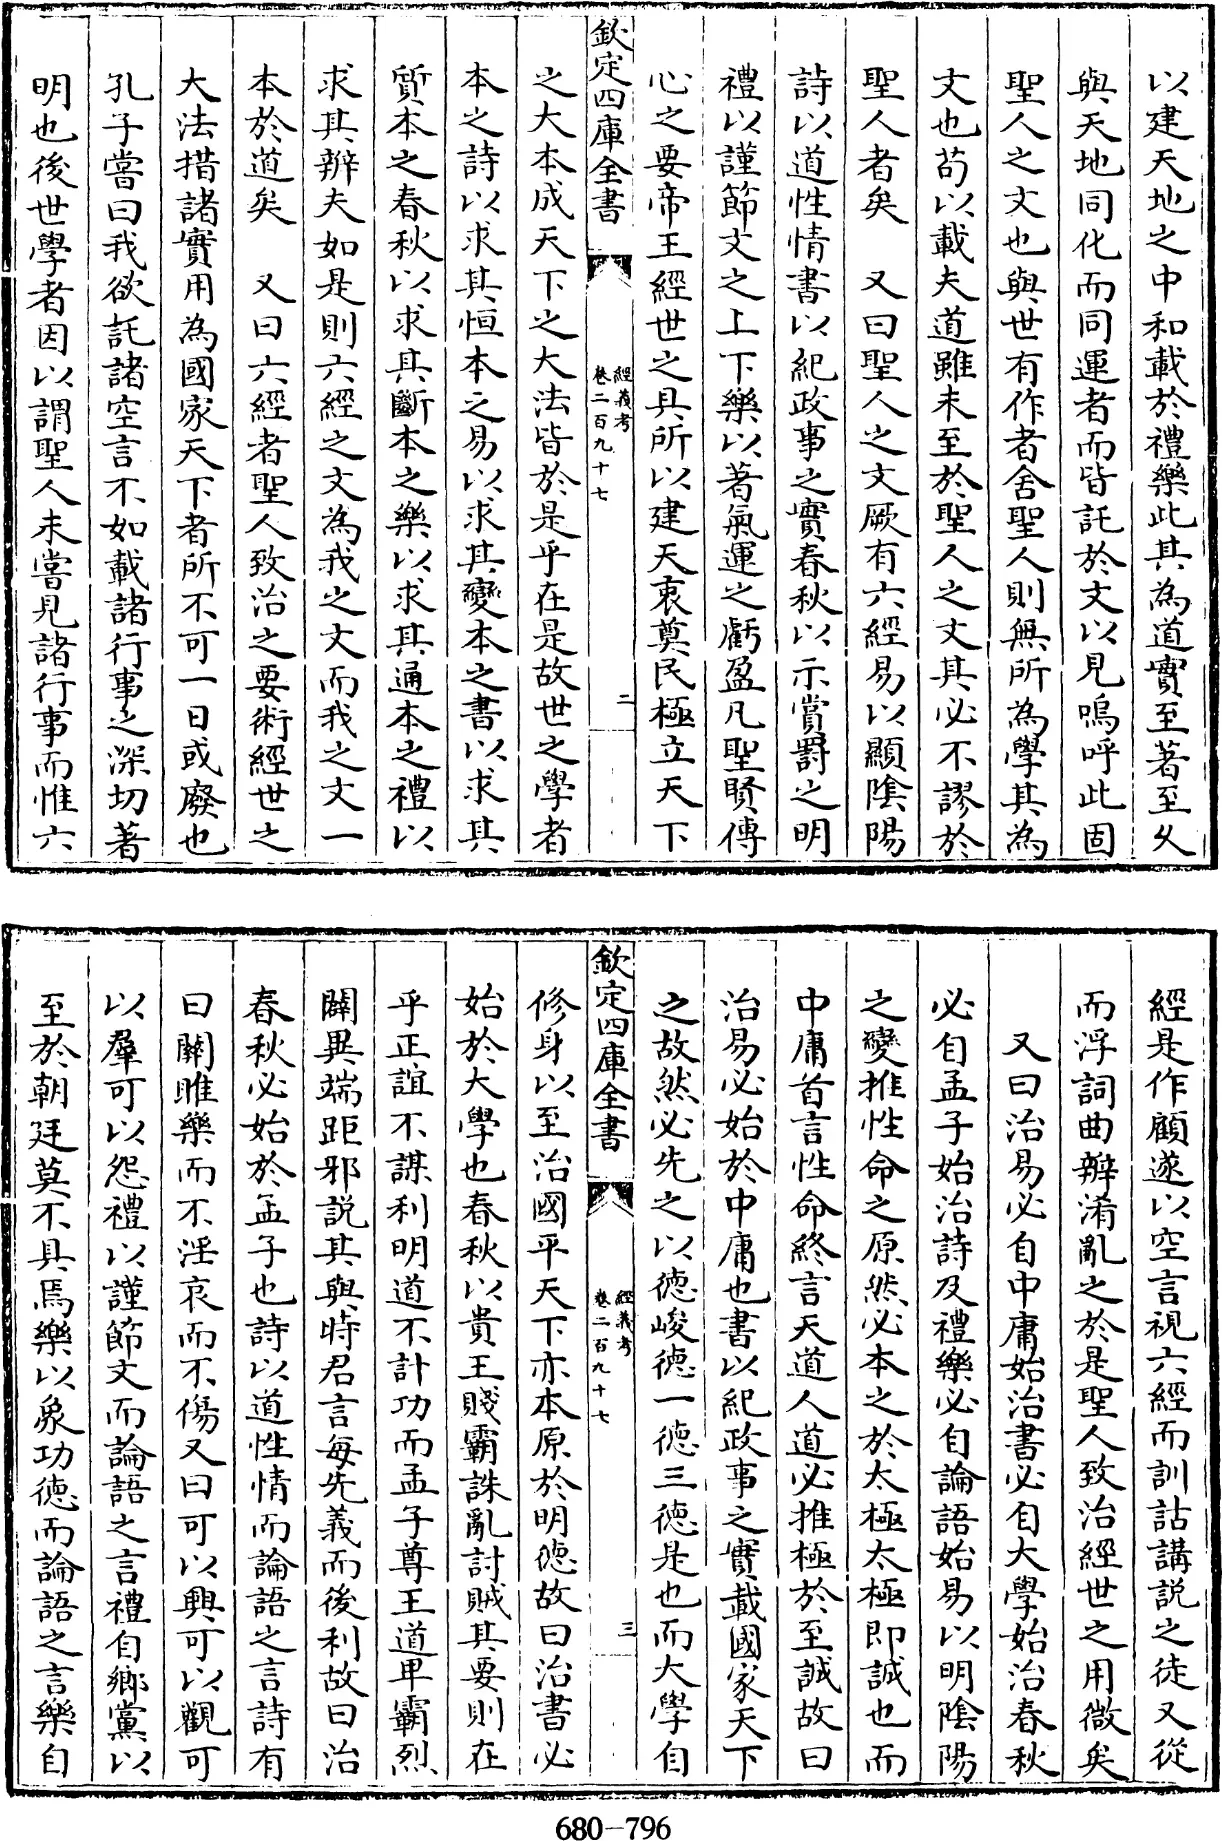 以建天地之中和載於禮樂此其為道實至著至久
與天地同化而同運者而皆託於文以見嗚呼此固
聖人之文也與世有作者舍聖人則無所為學其為
文也茍以載夫道雖未至於聖人之文其必不謬於
聖人者矣　又曰聖人之文厥有六經易以顯陰陽
詩以道性情書以紀政事之實春秋以示賞罰之明
禮以謹節文之上下樂以著氣運之虧盈凡聖賢傳
心之要帝王經世之具所以建天衷奠民極立天下
欽定四庫全書
經義考
卷二百九十七
二
之大本成天下之大法皆於是乎在是故世之學者
本之詩以求其恒本之易以求其變本之書以求其
質本之春秋以求其斷本之樂以求其通本之禮以
求其辨夫如是則六經之文為我之文而我之文一
本於道矣　又曰六經者聖人致治之要術經世之
大法措諸實用為國家天下者所不可一日或廢也
孔子嘗曰我欲託諸空言不如載諸行事之深切著
明也後世學者因以謂聖人未嘗見諸行事而惟六
經是作顧遂以空言視六經而訓詁講説之徒又從
而浮詞曲辯淆亂之於是聖人致治經世之用微矣
又曰治易必自中庸始治書必自大學始治春秋
必自孟子始治詩及禮樂必自論語始易以明陰陽
之變推性命之原然必本之於太極太極即誠也而
中庸首言性命終言天道人道必推極於至誠故曰
治易必始於中庸也書以紀政事之實載國家天下
之故然必先之以德峻德一德三德是也而大學自
欽定四庫全書
經義考
卷二百九十七
三
修身以至治國平天下亦本原於明德故曰治書必
始於大學也春秋以貴王賤霸誅亂討賊其要則在
乎正誼不謀利明道不計功而孟子尊王道卑霸烈
闢異端距邪説其與時君言每先義而後利故曰治
春秋必始於孟子也詩以道性情而論語之言詩有
曰關雎樂而不淫哀而不傷又曰可以興可以觀可
以羣可以怨禮以謹節文而論語之言禮自鄉黨以
至於朝廷莫不具焉樂以象功德而論語之言樂自
680-796